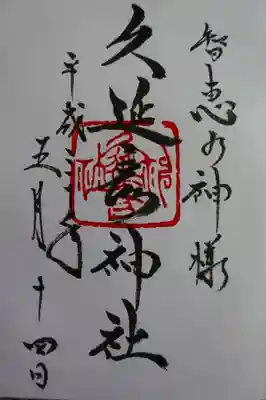 智恵の神様
久延彦神社
平成三十年
五月十四日